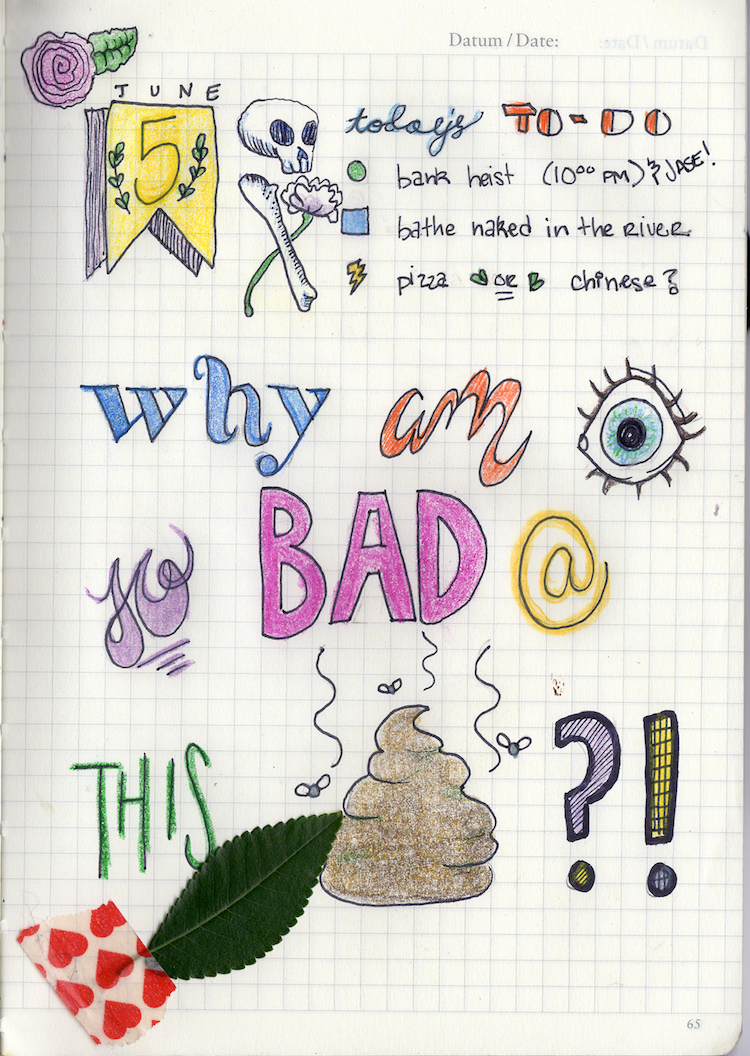 Datum / Date:
JUNE
5
today's TO-DO
bank heist (10⁰⁰ PM) & JASE!
bathe naked in the RIVER
pizza OR chinese?
why am
so BAD @
THIS ?!
65